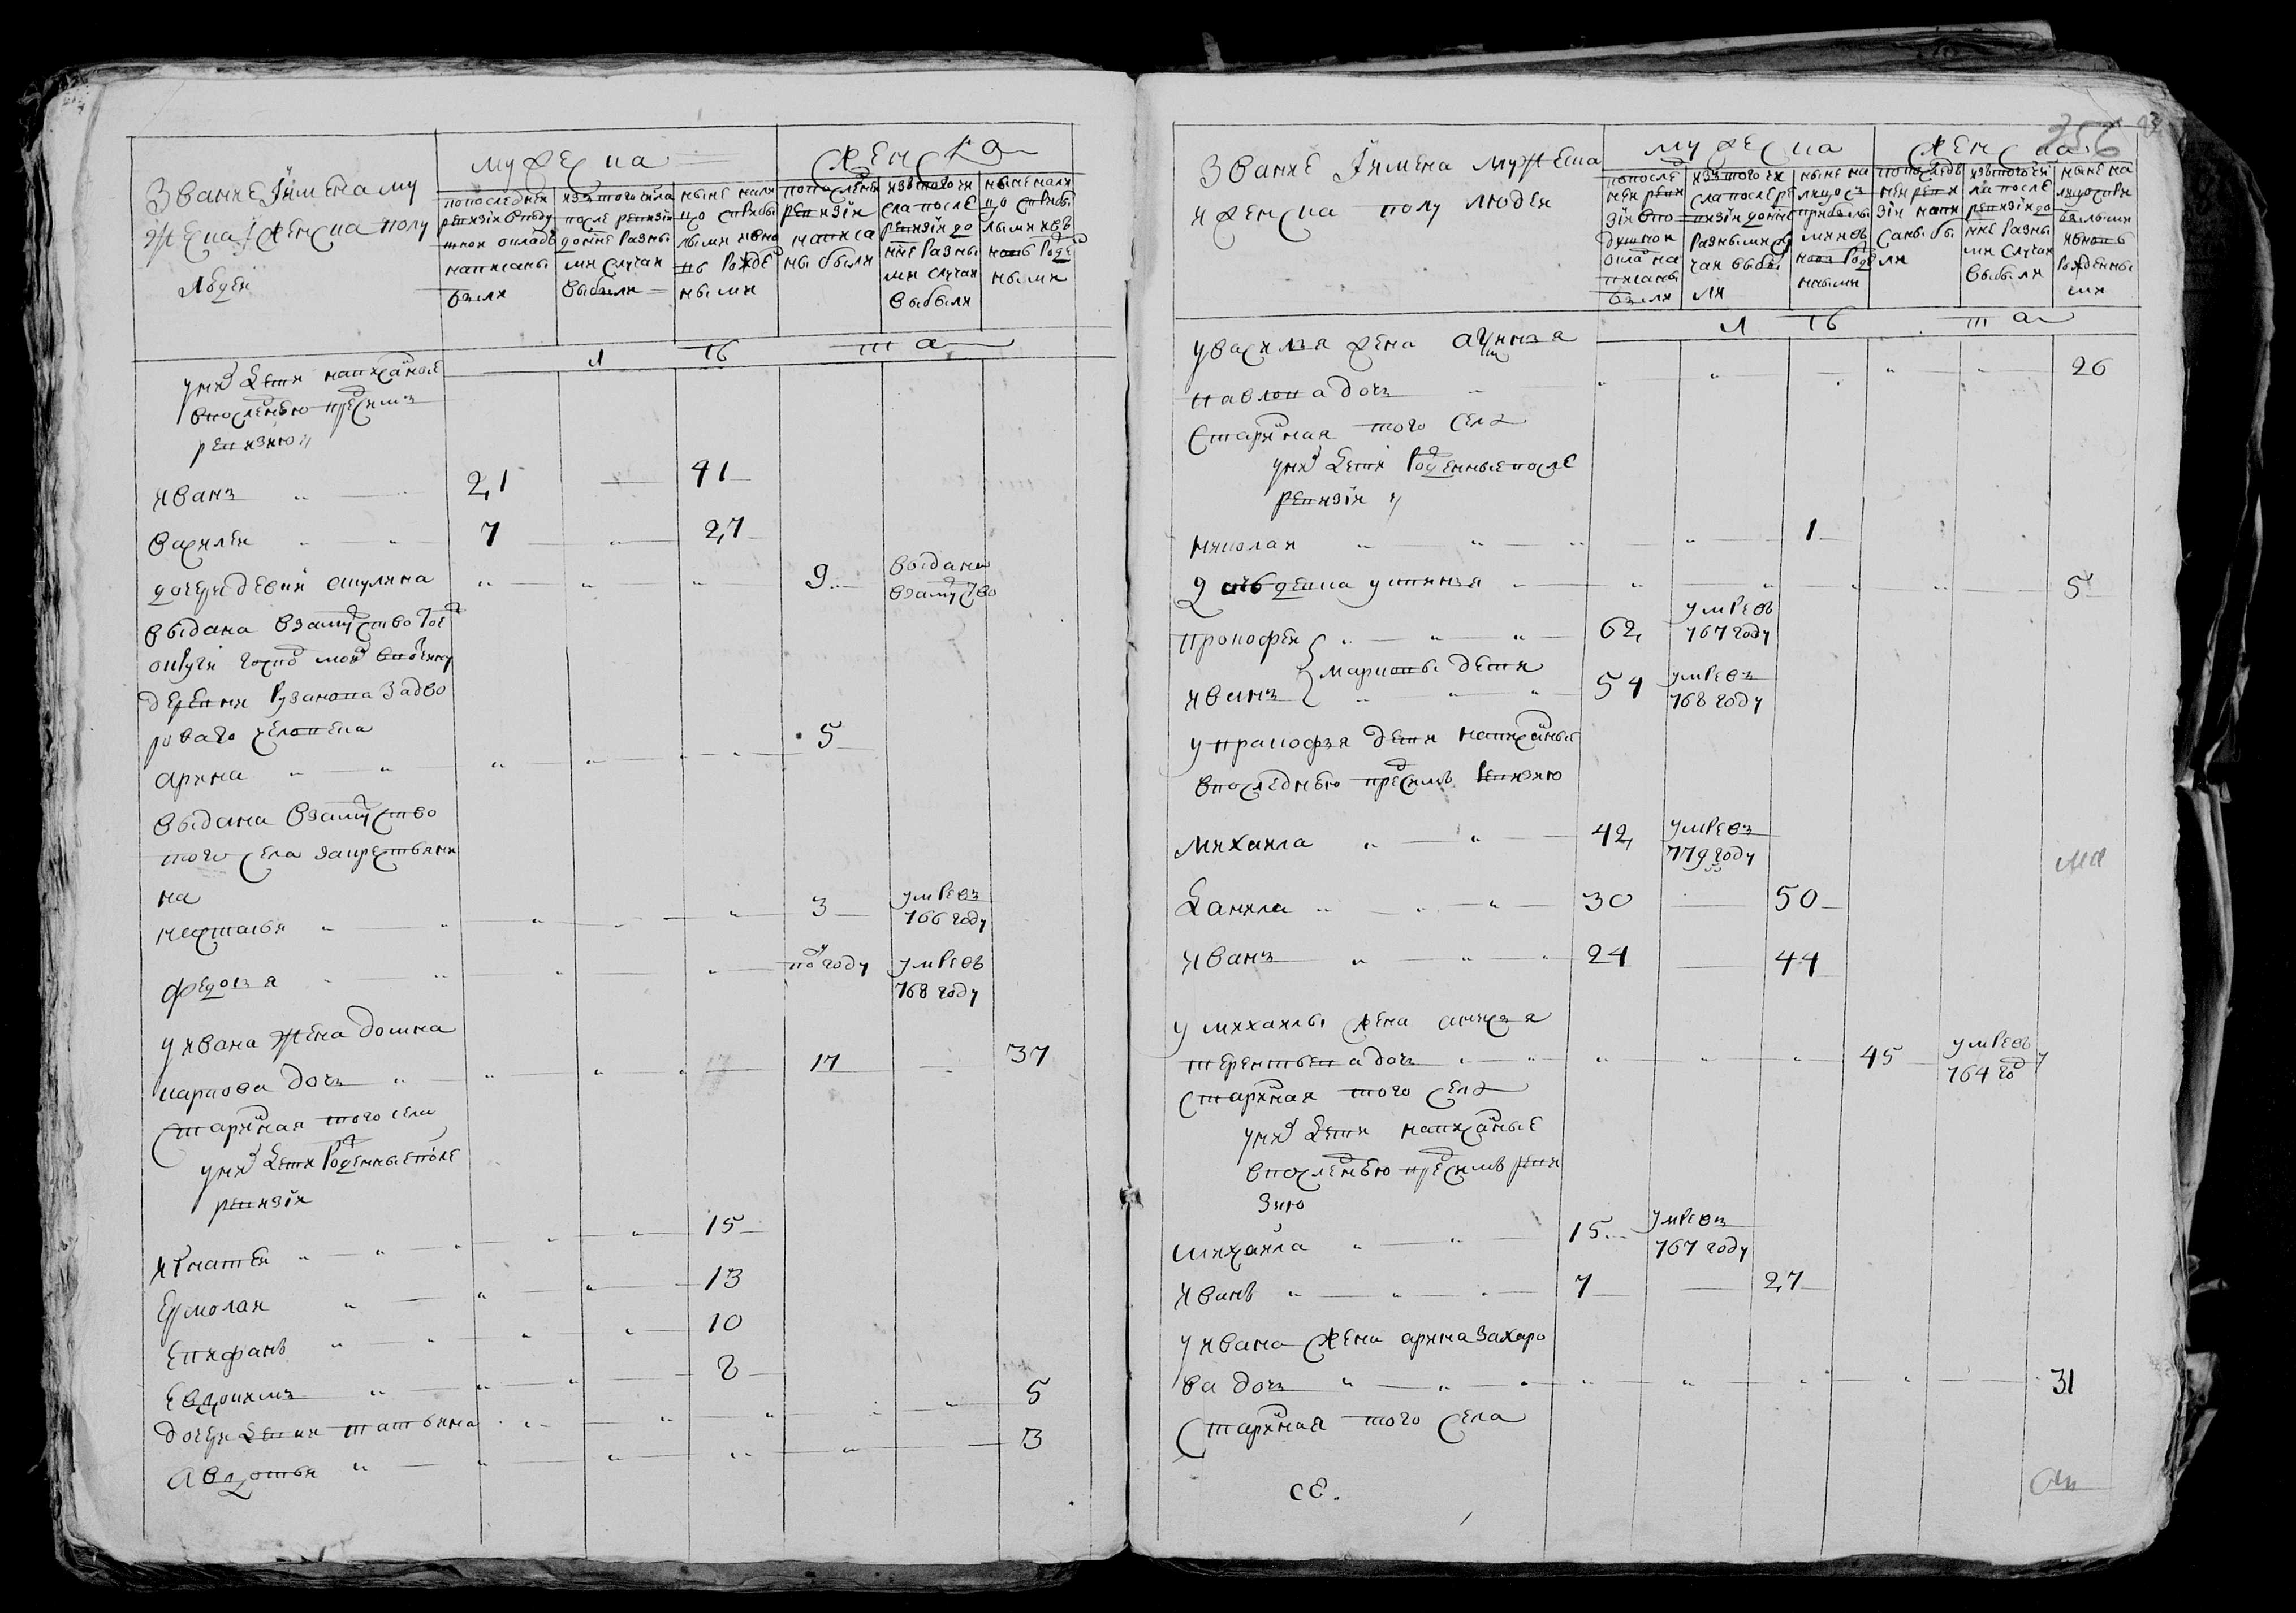 Звание Iимена му
жеска Iженска полу
людеи
мужеска
женска
попоследнеи ревизiи вподушнои окладъ написаны были
изтого числа после ревизiи доныне разными случаи выбыли
ныне налицо сприбылыми ивновь рожденными
попоследнеи ревизiи написаны были
изтого числа после ревизiи доныне разными случаи выбыли
ныне налицо сприбылыми ивновь рожденными
л ѣ т а
уних дети написаные
впоследнюю пред сим
ревизию
иванъ 21 41
василеи 7 27
дочери девки акулина 9 выдана взамуство
выдана взамуство тое
округи
деревни рузанова задво
роваго человека
арина 5
выдана взамуство
того села закрестьяни
на
настасья 3 умре въ 766 году
федосья полгоду умре въ 768 году
уивана жена домна
карпова дочь 17 37
старинная того села
уних дети рожденные после
ревизiи
игнатеи 15
ермолаи 13
епифанъ 10
евдокимъ 8
дочери девки татьяна 5
авдотья 3
356
Звание Iимена мужеска
и женска полу людеи
мужеска
женска
попоследнеи ревизiи вподушнои окладъ написаны были
изтого числа после ревизiи доныне разными случаи выбыли
ныне налицо сприбылыми ивновь рожденными
попоследнеи ревизiи написаны были
изтого числа после ревизiи доныне разными случаи выбыли
ныне налицо сприбылыми ивновь рожденными
л ѣ т а
увасилья жена
павлова дочь 26
старинная того села
уних дети рожденные после
ревизiи
николаи 1
дочь девка устинья 5
прокофеи 62 умре въ 767 году
марковы дети
иванъ 54 умре въ 768 году
упракофья дети написаные
впоследнюю пред симъ ревизию
михаила 42 умре въ 779 году
данила 30 50
иванъ 24 44
умихаилы жена анисья
терентьева дочь 45 умре въ 764 году
старинная того села
уних дети написаные
впоследнюю пред симъ реви
зию
михаила 15 умре въ 767 году
иванъ 7 27
уивана жена арина захаро
ва дочь 31
старинная того села
се.